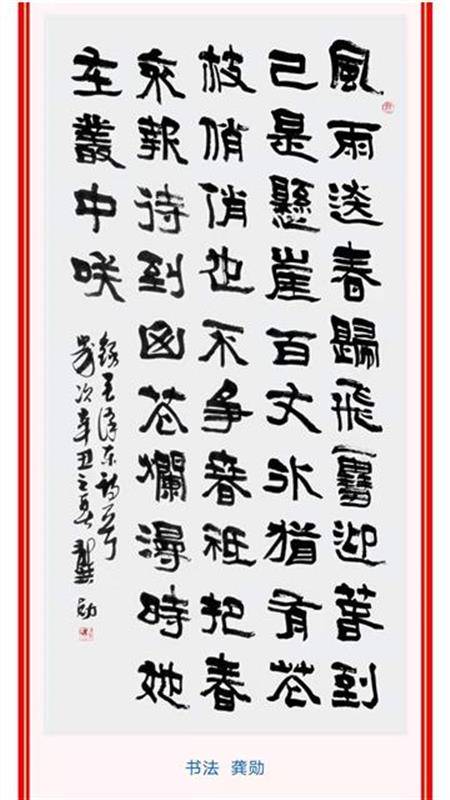 風雨送春歸飛雪迎春到
已是懸崖百丈冰猶有花
枝俏俏也不爭春祗把春
來報待到山花爛漫時她
在叢中咲
錄毛澤東詩
歲次辛丑之春 龔勛
书法 龚勋